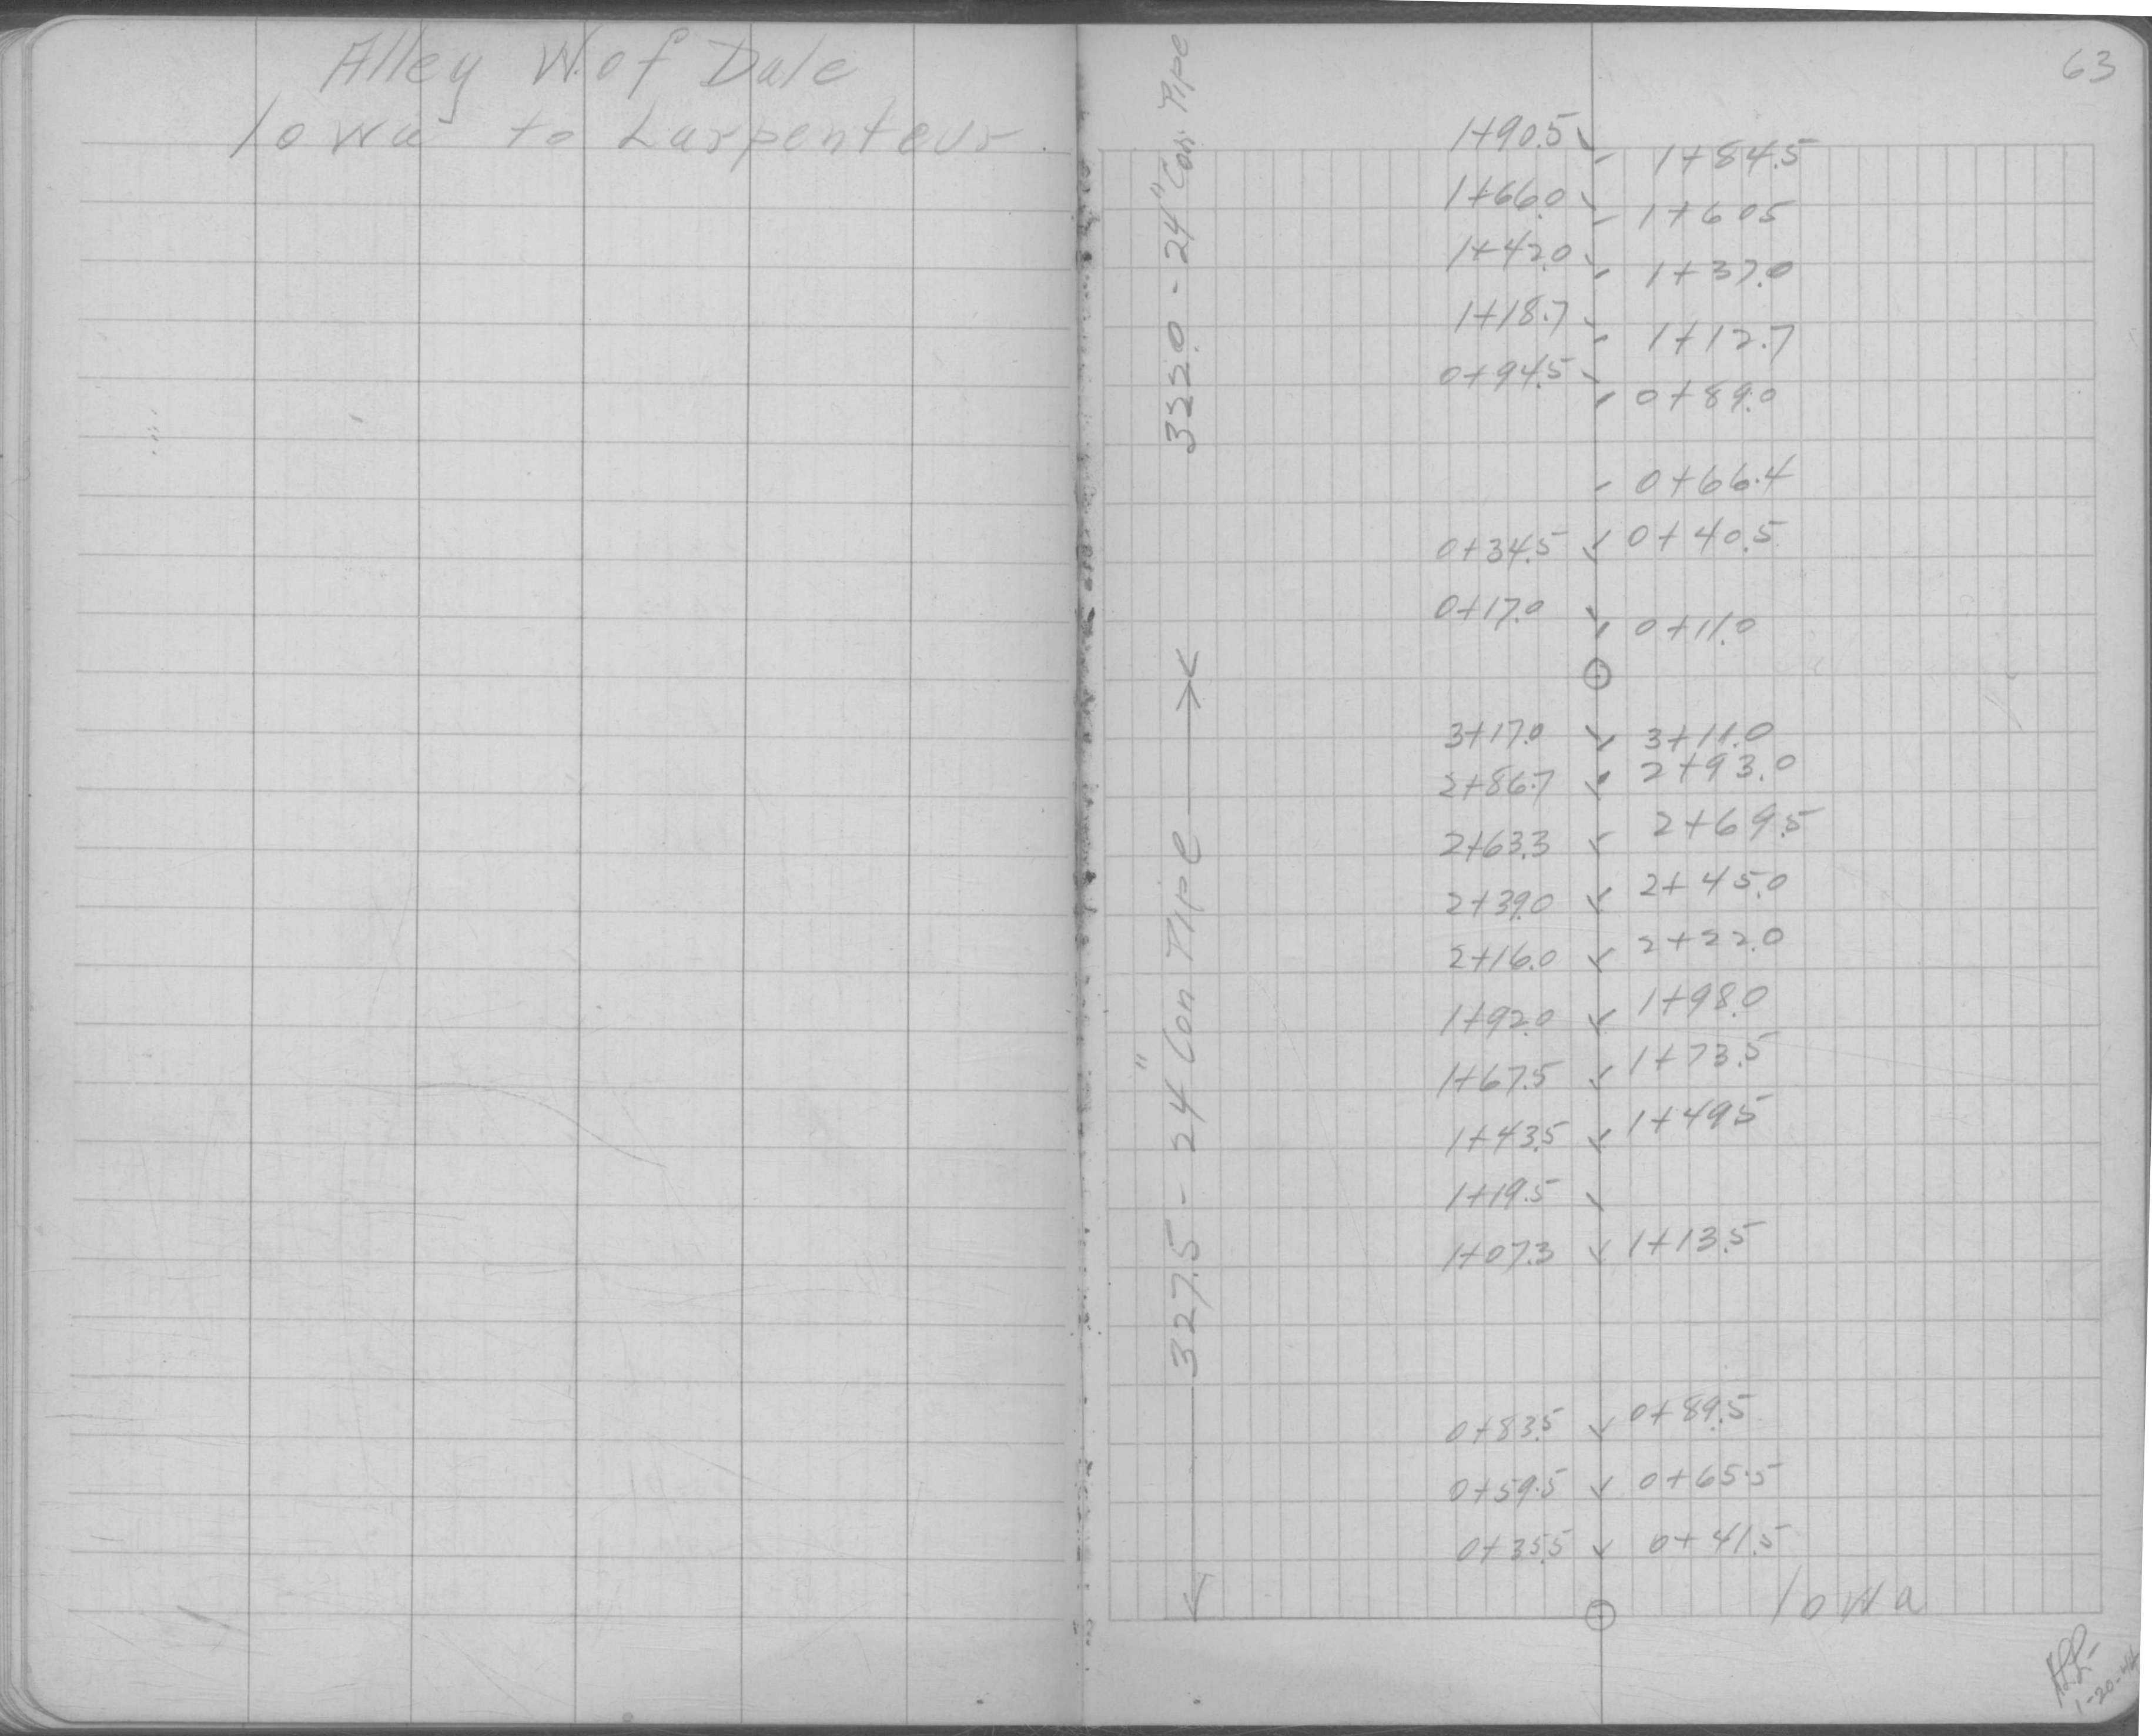 Alley W. of Dale
Iowa to Larpenteur
63
352.0 - 24" Con. Pipe
1+90.5
1+84.5
1+66.0
1+605
1+42.0
1+37.0
1+18.7
1+12.7
0+94.5
0+89.0
0+66.4
0+34.5 0+40.5
0+17.0
0+11.0
327.5 - 24" Con Pipe
3+17.0 3+11.0
2+86.7 2+93.0
2+63.3 2+69.5
2+39.0 2+45.0
2+16.0 2+22.0
1+92.0 1+98.0
1+67.5 1+73.5
1+43.5 1+495
1+19.5
1+07.3 1+13.5
0+83.5 0+89.5
0+59.5 0+65.5
0+35.5 0+41.5
Iowa